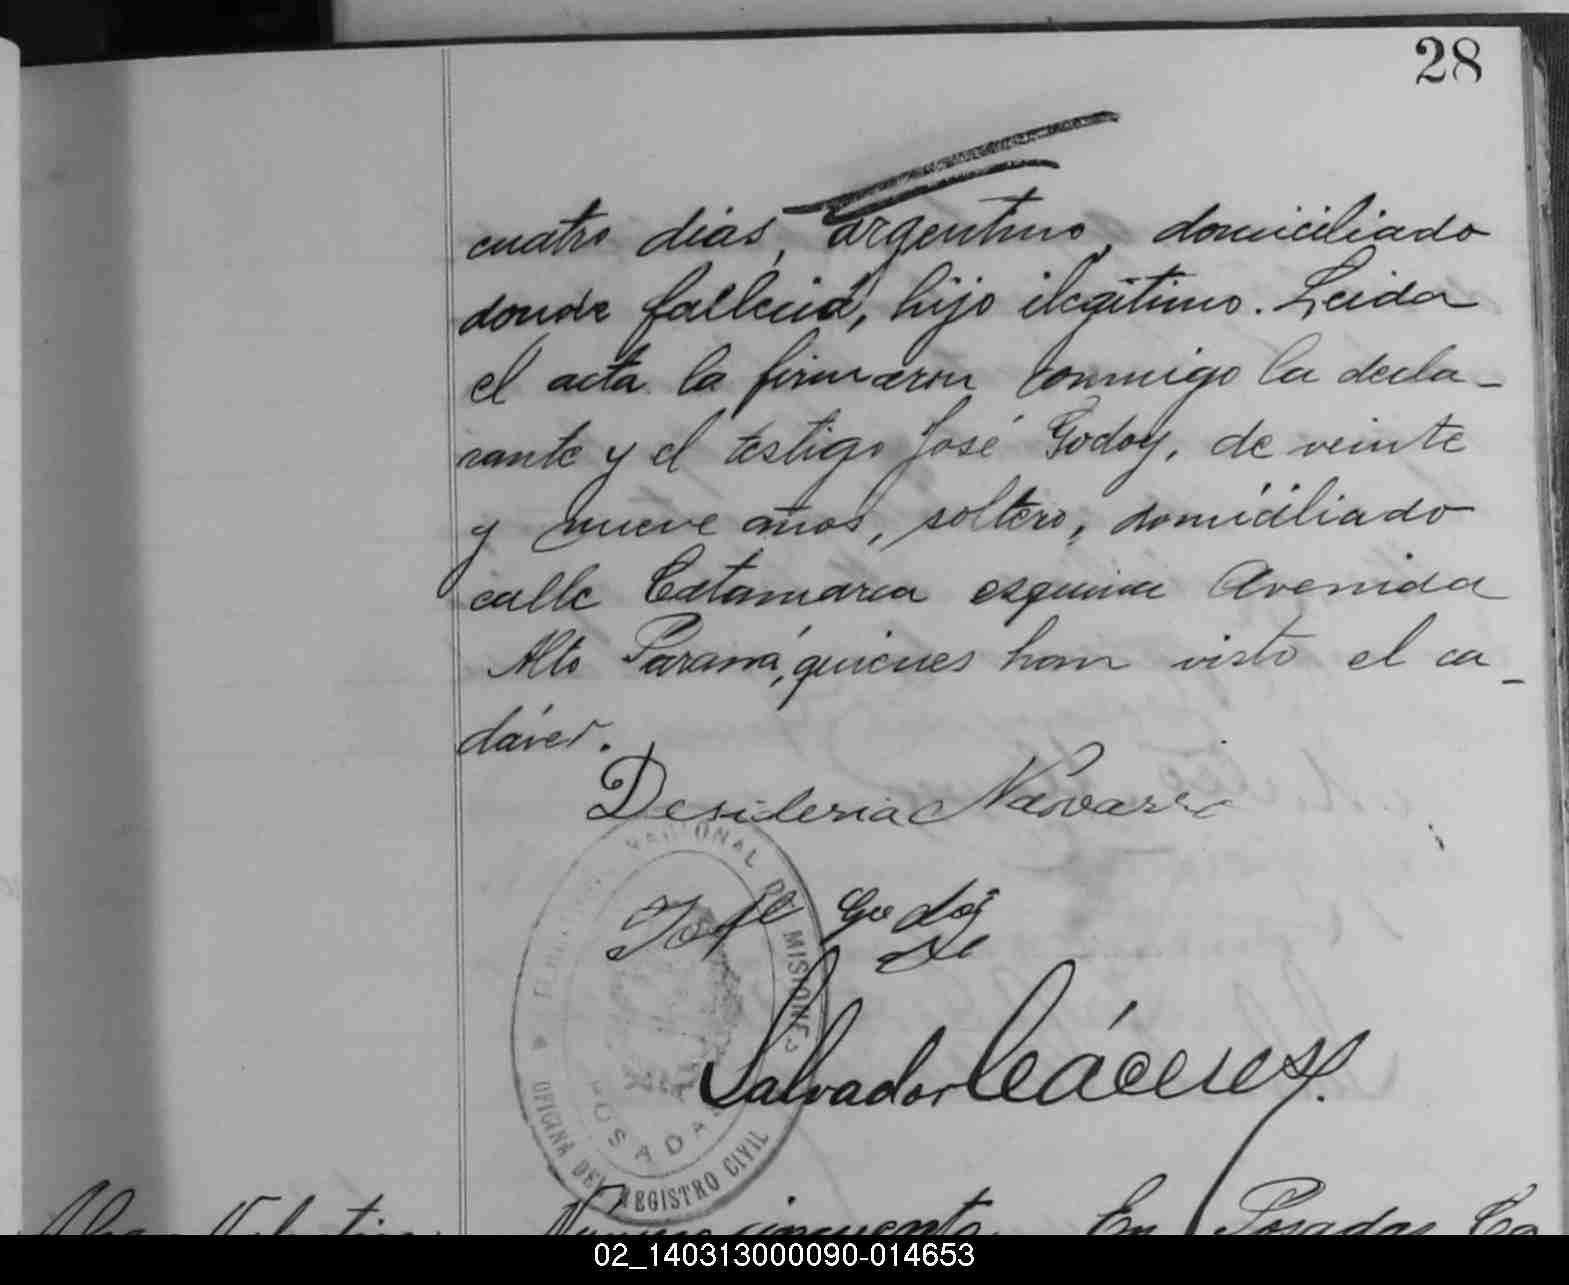 28
cuatro dias, argentino, domiciliado
donde falleció, hijo ilegítimo. Leida
el acta la firmaron conmigo la decla-
rante y el testigo José Godoy, de veinte
y nueve años, soltero, domiciliado
calle Catamarca esquina Avenida
Alto Paraná, quienes han visto el ca-
dáver.
Desideria Navarro
NACIONAL DE MISIONES
José Godoy
Salvador Cáceres
POSADAS
OFICINA DEL REGISTRO CIVIL
Número cincuenta. En Posadas, Ca
02_140313000090-014653